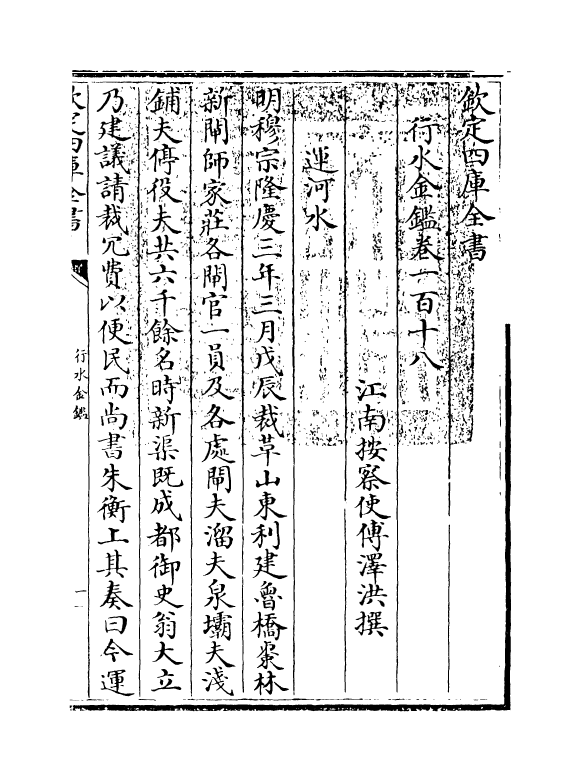 欽定四庫全書
行水金鑑卷一百十八
江南按察使傅澤洪撰
運河水
明穆宗隆慶三年三月戊辰裁革山東利建魯橋棗林
新閘師家莊各閘官一員及各處閘夫溜夫泉壩夫淺
鋪夫停役夫共六千餘名時新渠既成都御史翁大立
乃建議請裁冗費以便民而尚書朱衡上其奏曰今運
欽定四庫全書
行水金鑑
一